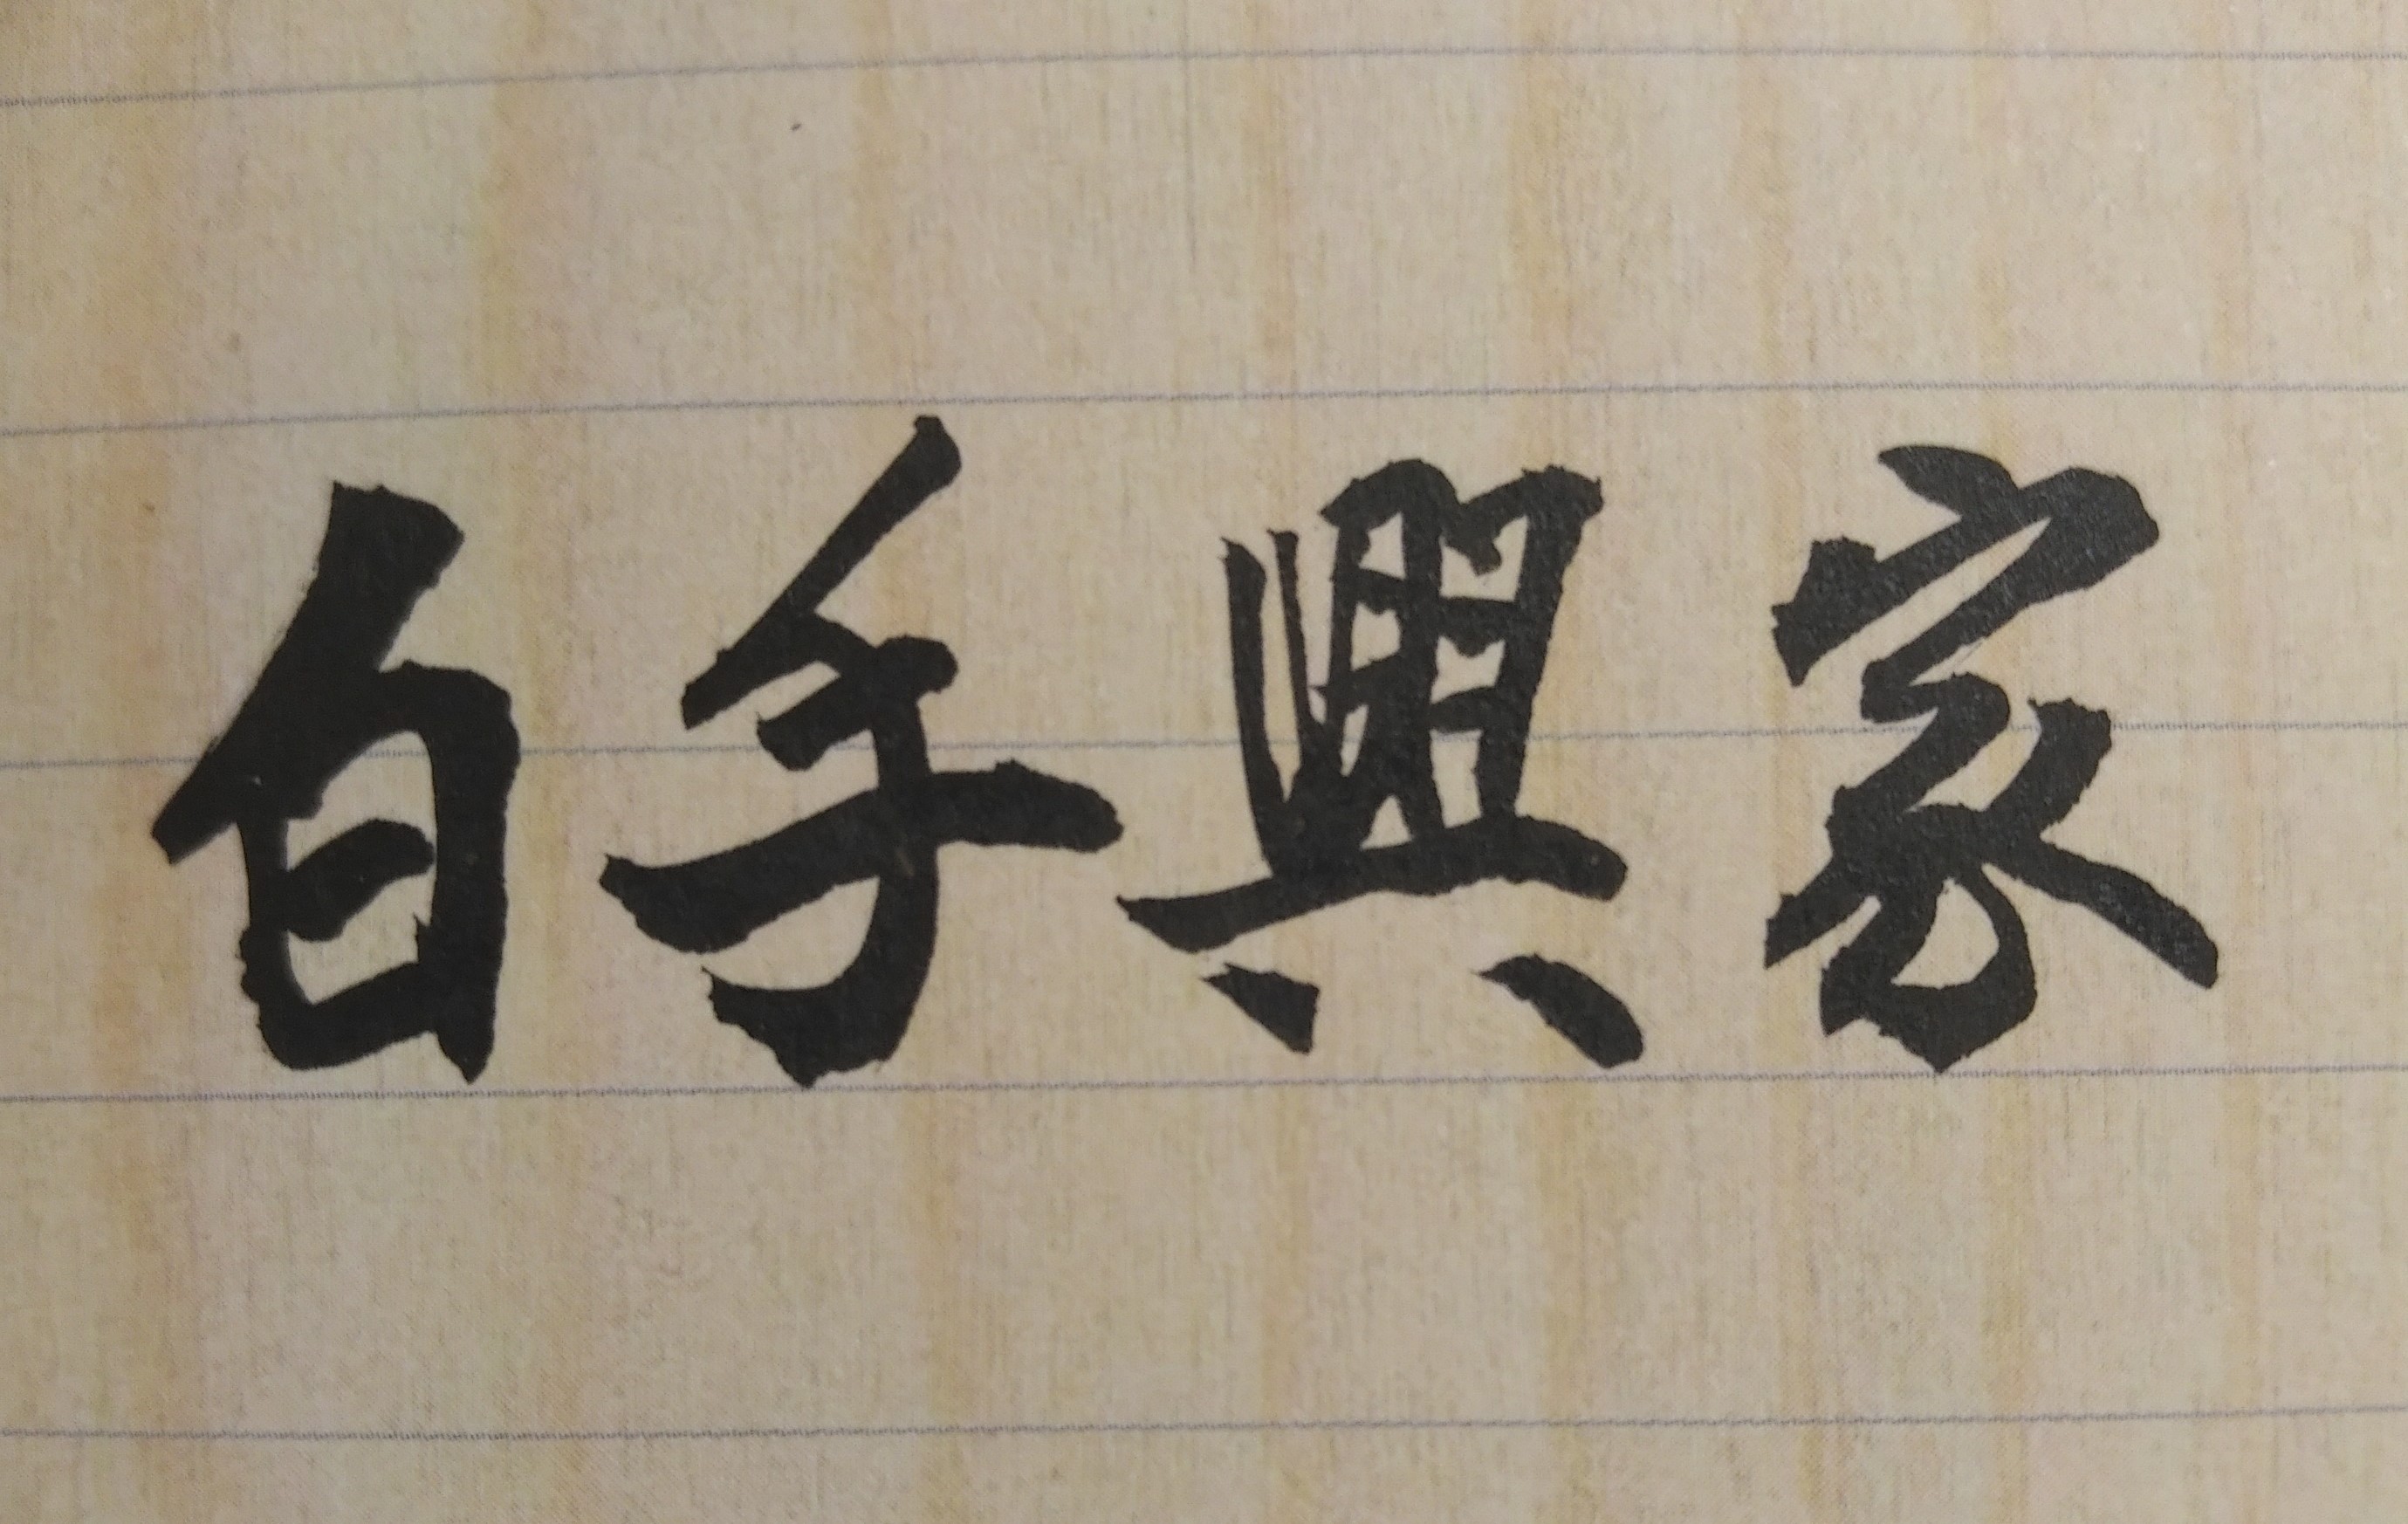 白手興家